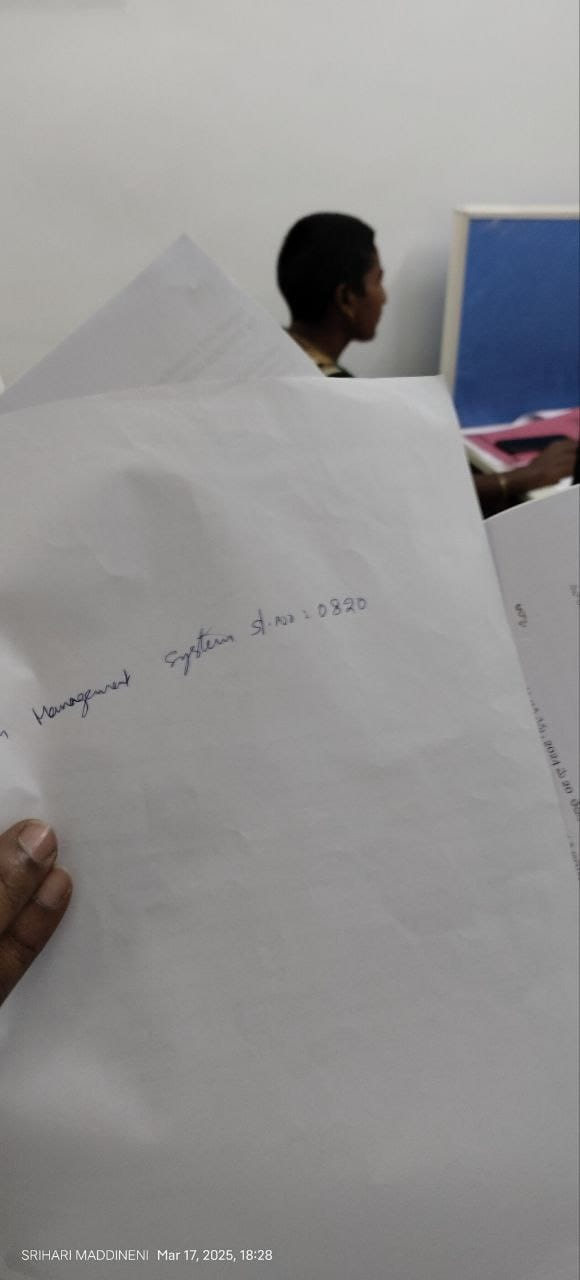 Management System Sl.No : 0820
SRIHARI MADDINENI Mar 17, 2025, 18:28